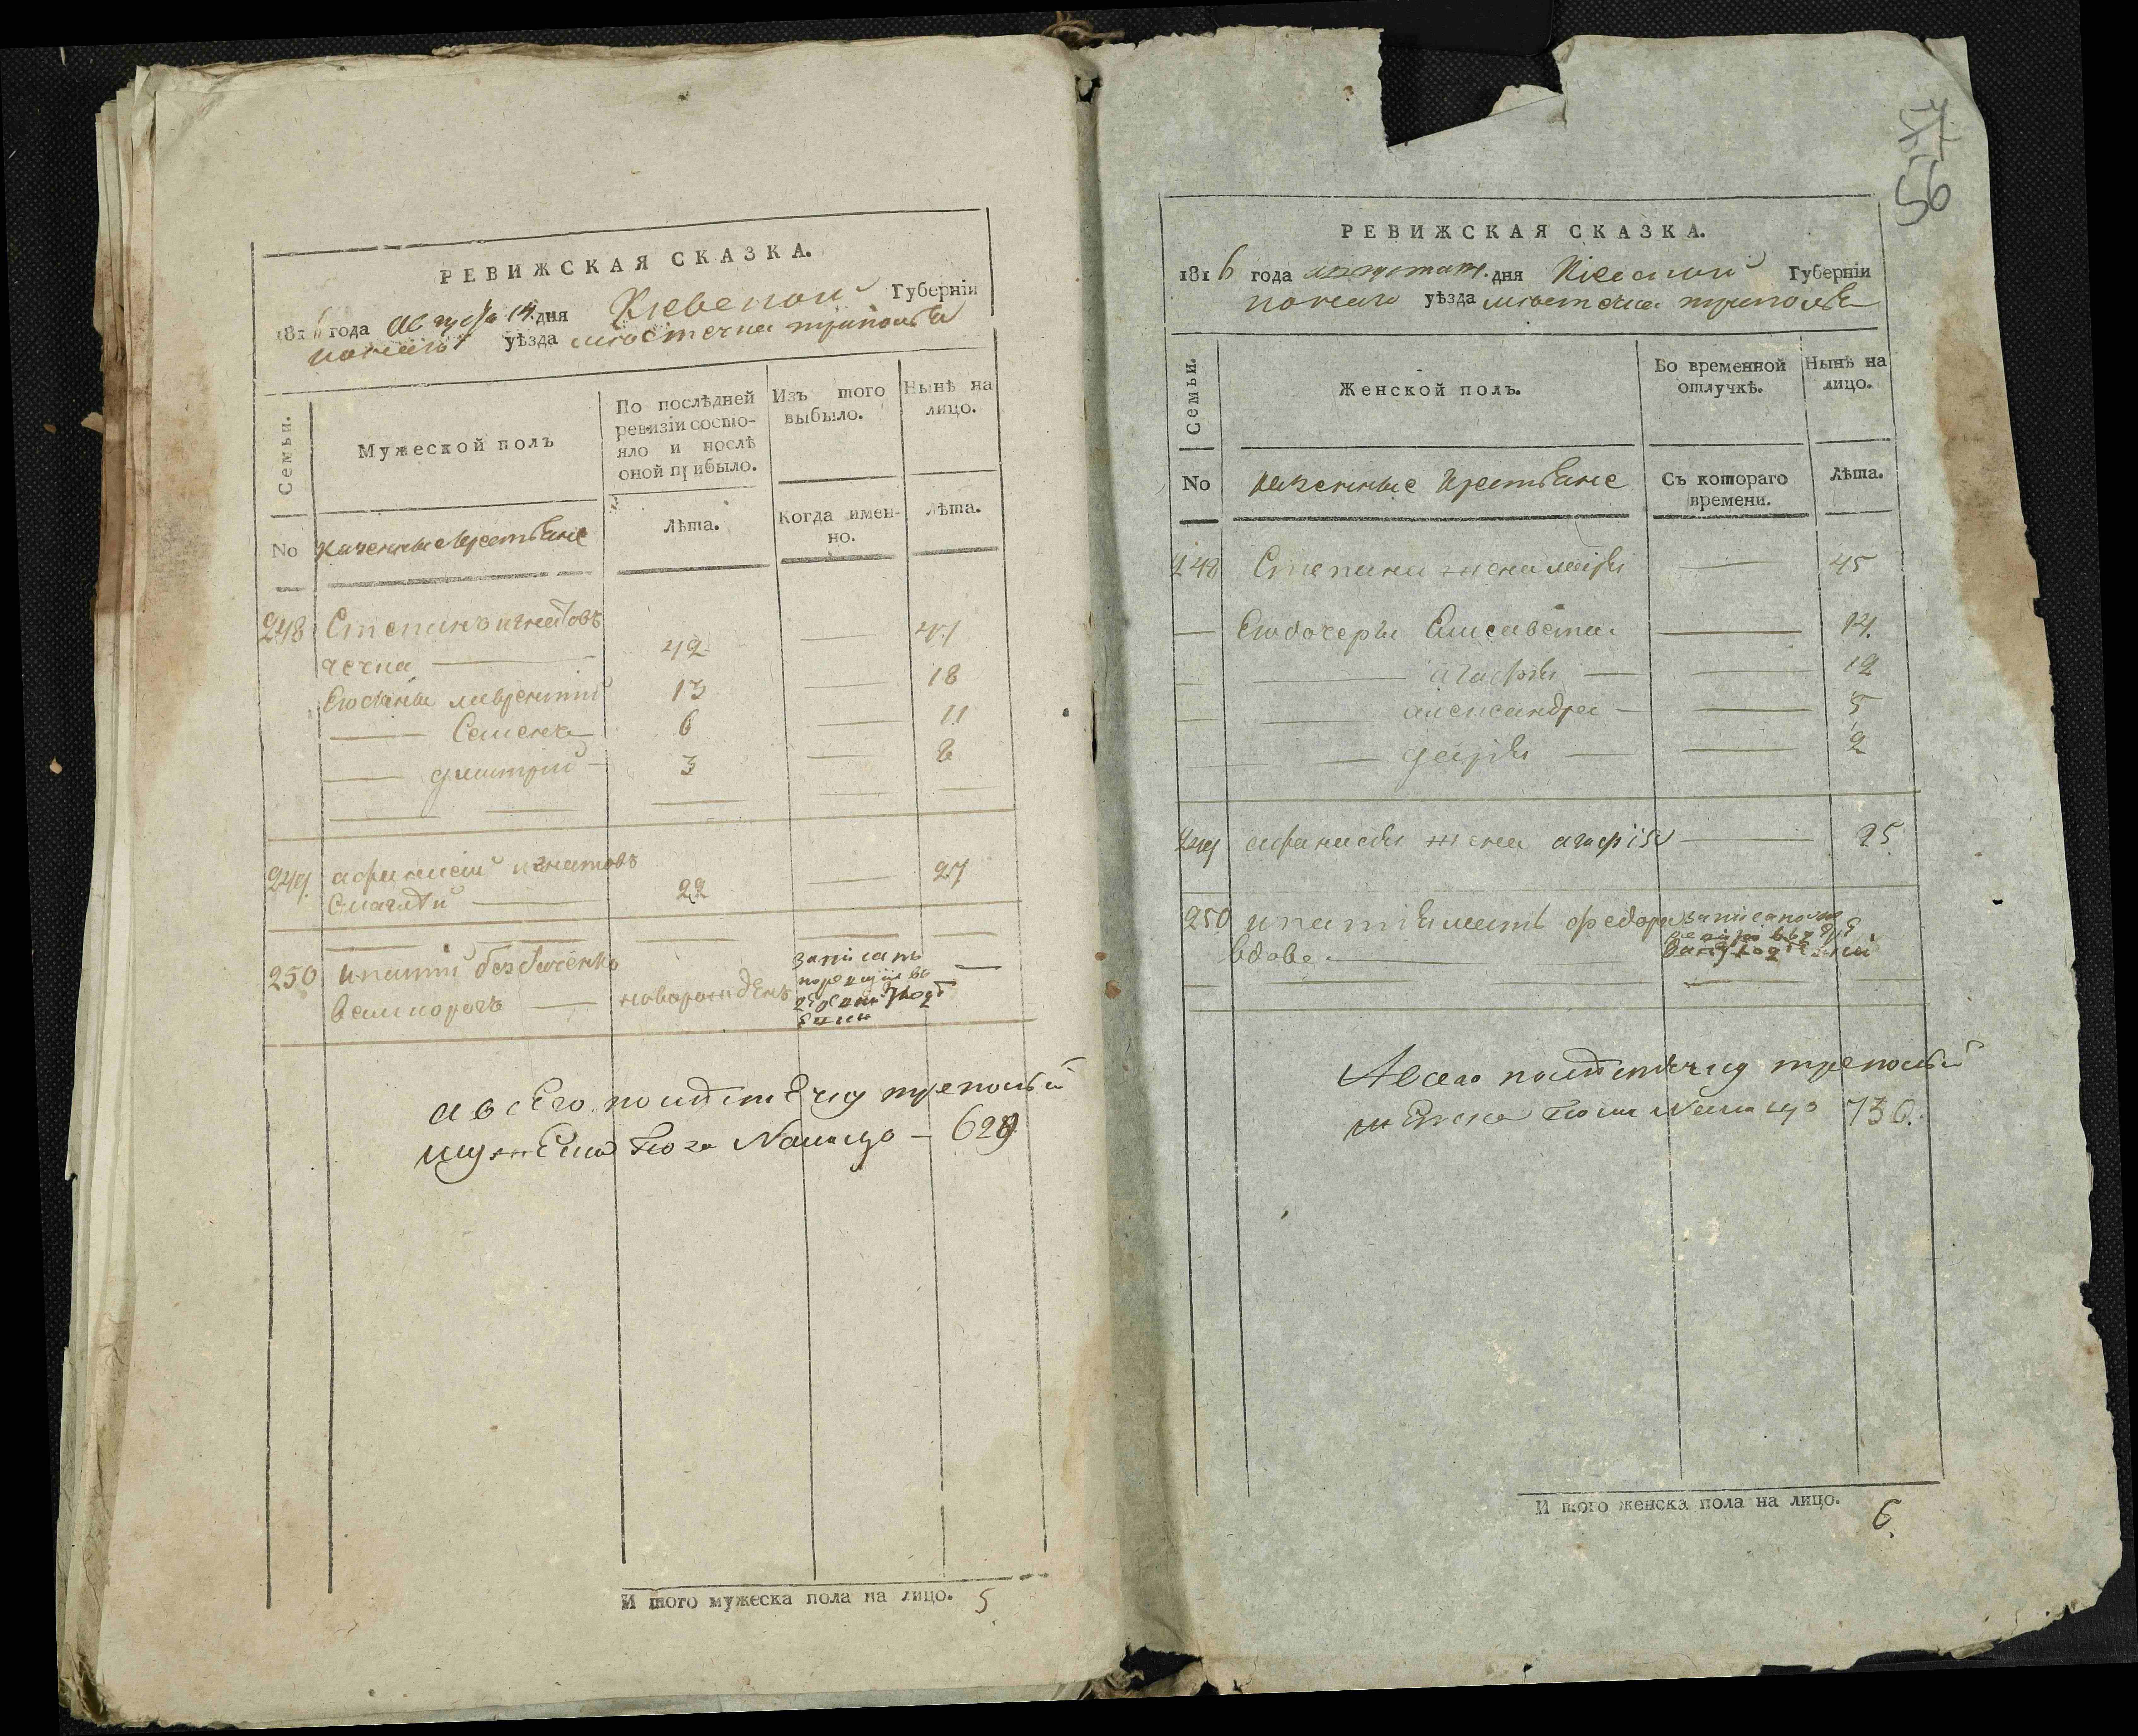 РЕВИЖСКАЯ СКАЗКА.
181 года Августа 14 дня Киевской Губерніи
уѣзда местечка триполья
Семьи.
Мужеской полъ
По послѣдней
ревизіи состо-
яло и послѣ
оной прибыло.
Изъ того
выбыло.
Нынѣ на
лицо.
No
казенные крестьяне
Лѣта.
Когда имен-
но.
Лѣта.
248 Степанъ игнатовъ
42 47
Его сыны лаврентий 13 18
Семенъ 6 11
димитрий 3 8
249 афанасий игнатовъ
22 27
250 ипатий
новорожденъ
записанъ
а всего по местечку триполью
мужеска пола Налицо 629
И того мужеска пола на лицо. 5
57
56
РЕВИЖСКАЯ СКАЗКА.
1816 года августа 14 дня Киевской Губерніи
уѣзда местечка триполья
Семьи.
Женской полъ.
Во временной
отлучкѣ.
Нынѣ на
лицо.
No
казенные крестьяне
Съ котораго
времени.
Лѣта.
248 Степана жена марья 45
Его дочери Елисавета 14
агафья 12
александра 5
дарья 2
249 афанасья жена агафія 25
250 ипатія мать федора записана
вдова
А всего по местечку триполью
женска пола Налицо 730.
И того женска пола на лицо. 6.